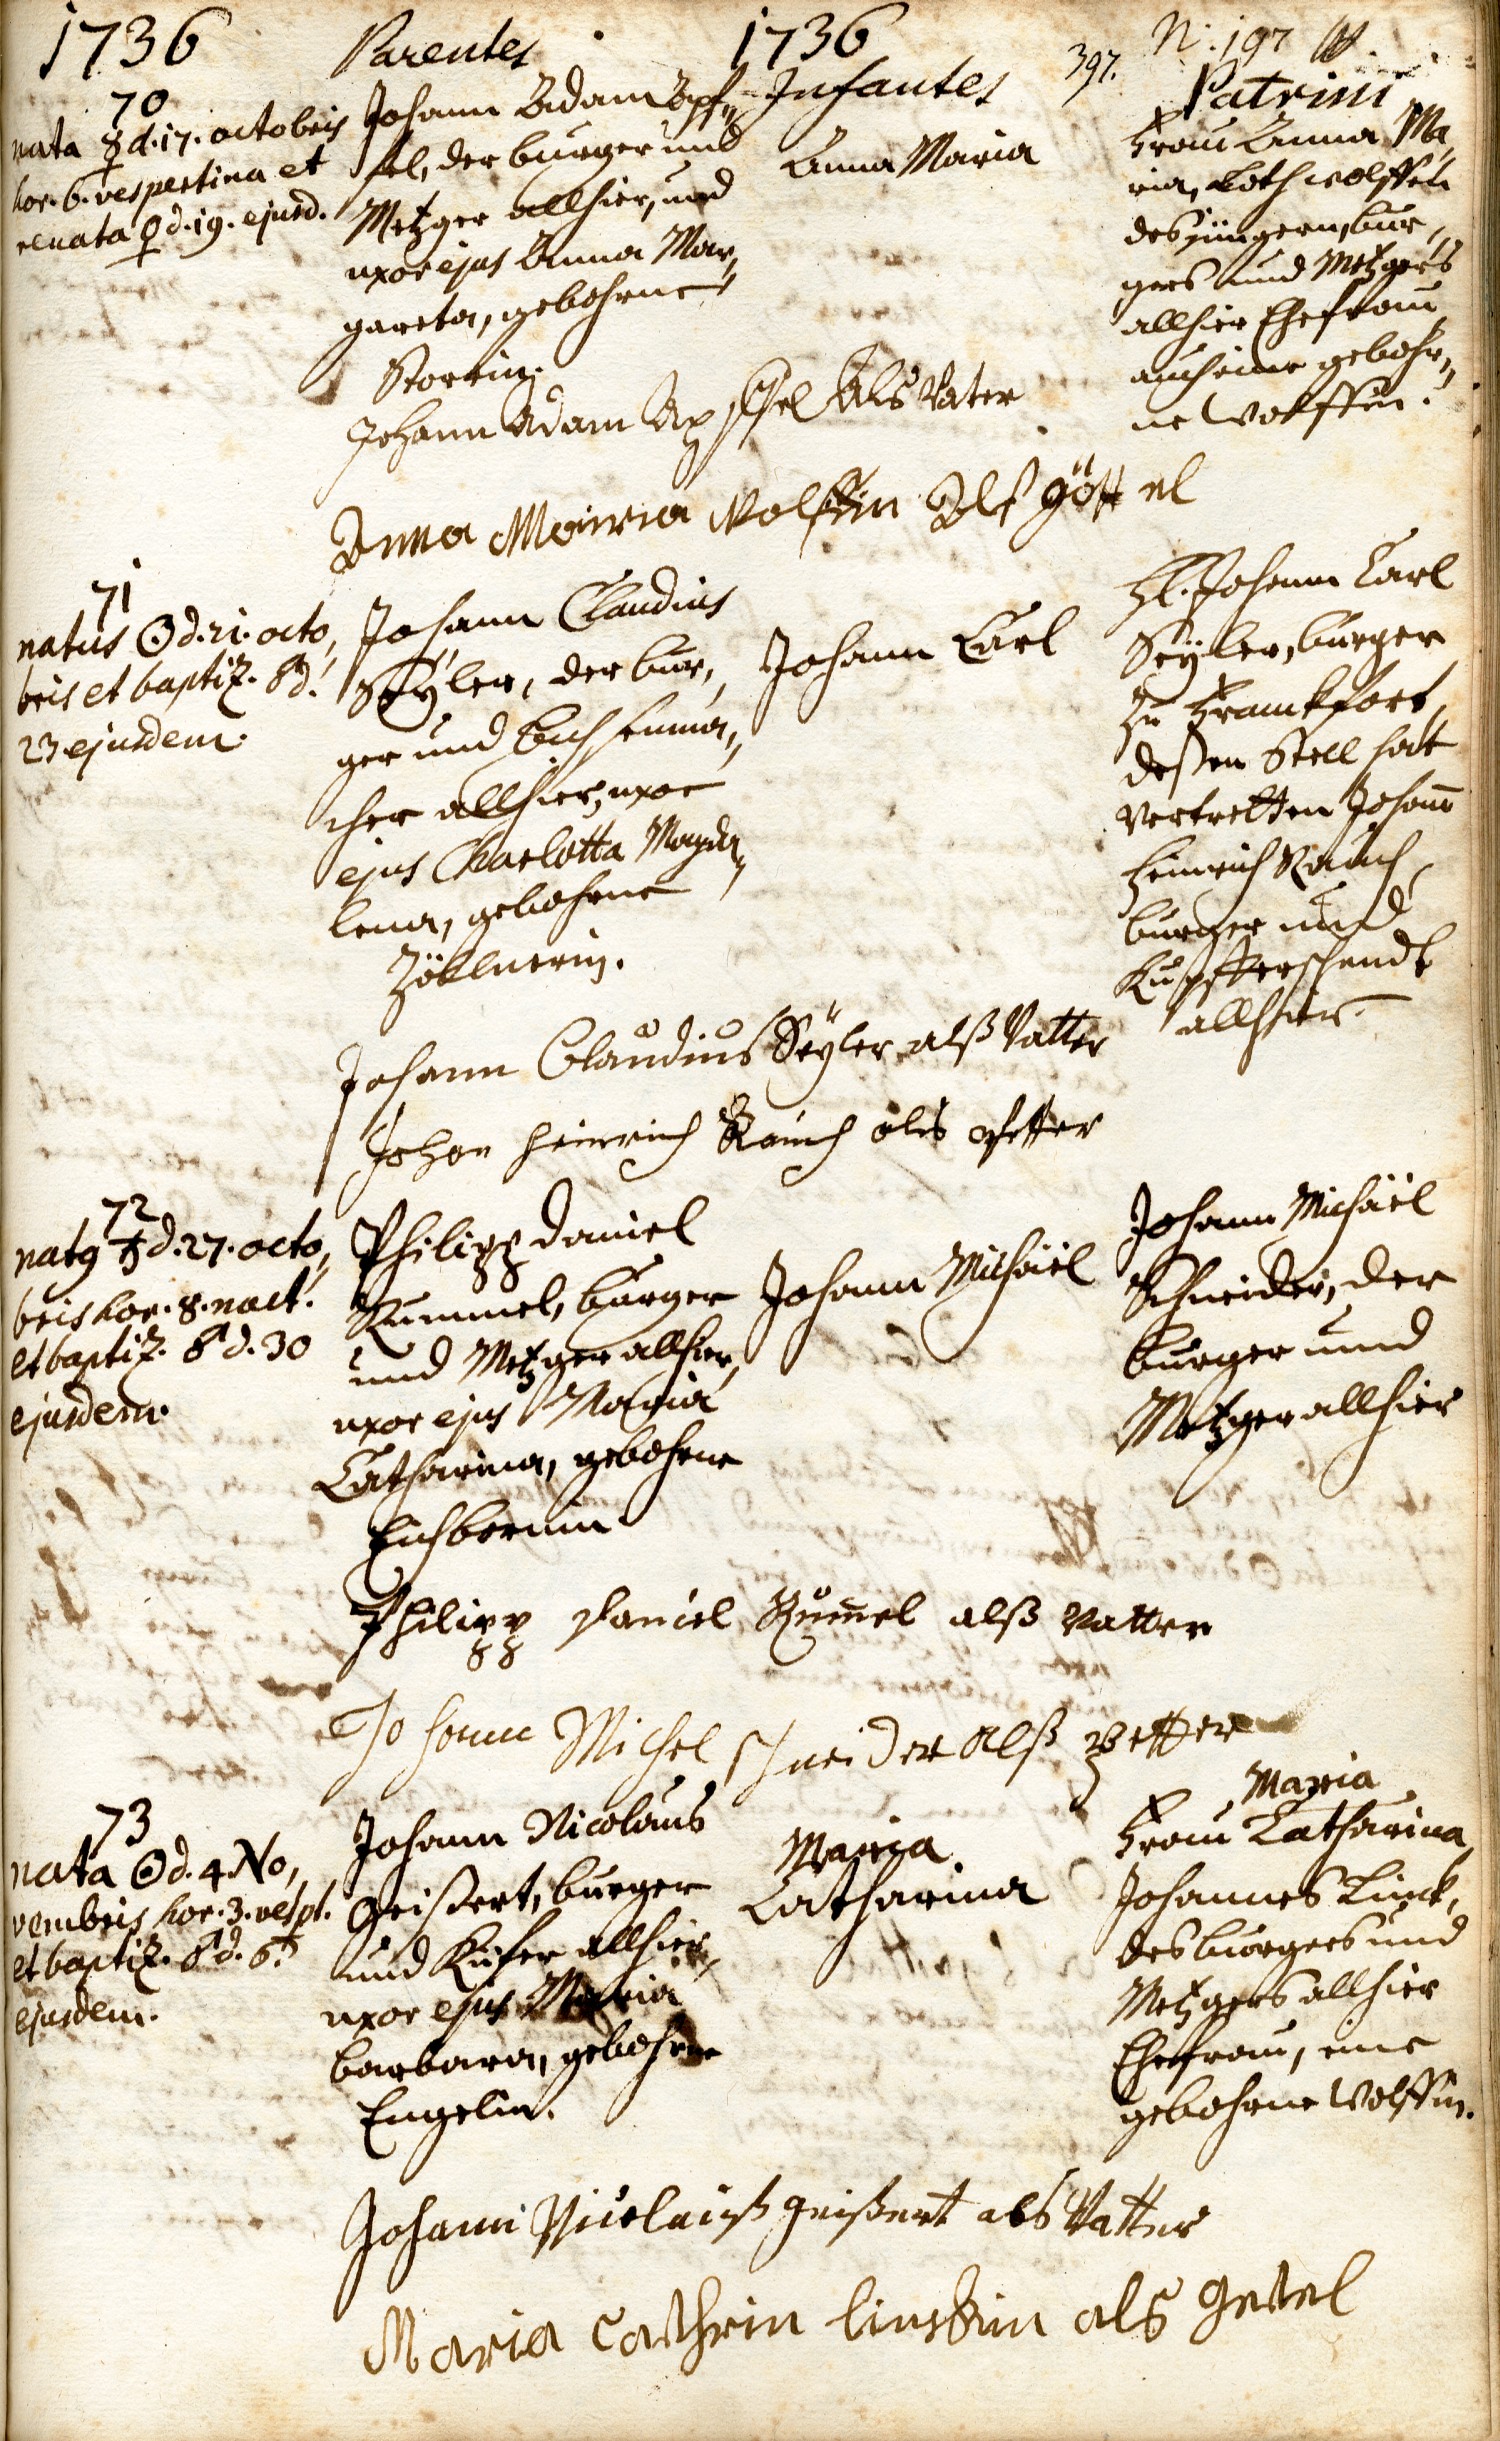 1736 Parentes 1736 Infantes 397. N. 197
Patrini
70
nata ☿ d. 17. octobris
hor. 6. vespertina et
renata ♀ d. 19. ejusd.
Johann Adam Apf„
fel, der burger und
Metzger allhier, und
uxor ejus Anna Mar„
gareta, gebohrne
Storrin.
Anna Maria
Frau Anna Ma„
ria, Loth Wolffen
des jüngern, bur„
gers und Metzgers
allhier Ehefrau
auch eine gebohr„
ne Wolffin.
Johann Adam Apffel Als Vater
Anna Mairia Wolffin Als göttel
71
natus ☉ d. 21. octo„
bris et baptiz. ♂ d.
23 ejusdem.
Johann Claudius
Seÿler, der bur„
ger und Büchsenma„
cher allhier, uxor
ejus Charlotta Magda„
lena, gebohrne
Zöllnerin.
Johann Carl
H. Johann Carl
Seÿler, burger
zu Franckfort,
deßen Stell hat
vertretten Johann
Heinrich Rauch,
burger und
Kupfferschmidt
allhier.
Johann Claudius Seÿler alß Vatter
Johan Heinrich Rauch als Petter
72
nat9 ♄ d. 27. octo„
bris hor. 8. noct.
et baptiz. ♂ d. 30
ejusdem.
Philipp Daniel
Kummel, burger
und Metzger allhier,
uxor ejus Maria
Catharina, gebohrne
Eichbornin
Johann Michäel
Johann Michäel
Schneider, der
burger und
Metzger allhier
Philipp Daniel Kumel alß Vatter
Johann Michel schneider alß petter
73
nata ☉ d. 4 No„
vembris hor. 3. vesp.
et baptiz. ♂ d. 6.
ejusdem.
Johann Nicolaus
Geißert, burger
und Küfer allhier,
uxor ejus Maria
barbara, gebohrne
Engelin.
Maria
Catharina
Maria
Frau Catharina,
Johannes Linck,
des burgers und
Metzgers allhier
Ehefrau, eine
gebohrne Wolffin.
Johann Nicolauß geißert als Vatter
Maria Cathrin linckin als getel